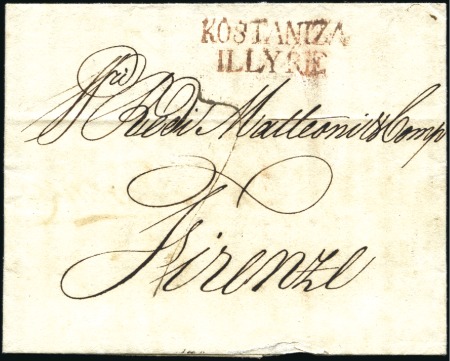 KOSTANIZA
ILLYRIE
Redi Matteoni & Comp
Firenze